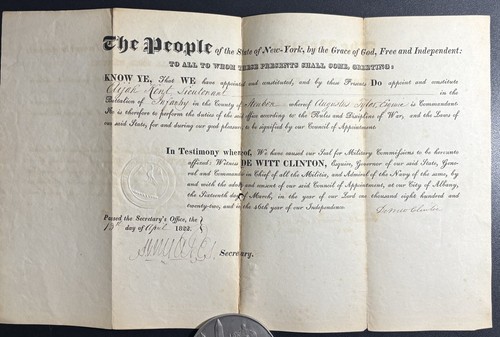 The People of the State of New-York, by the Grace of God, Free and Independent:
TO ALL TO WHOM THESE PRESENTS SHALL COME, GREETING:
KNOW YE, That WE have appointed and constituted, and by these Presents DO appoint and constitute
Elijah Kent Lieutenant in the
Battalion of Infantry in the County of Steuben whereof Augustus Tyler Esquire is Commandant
He is therefore to perform the duties of the said office according to the Rules and Discipline of War, and the Laws of
our said State, for and during our good pleasure, to be signified by our Council of Appointment:
In Testimony whereof, We have caused our Seal for Military Commissions to be hereunto
affixed: Witness DE WITT CLINTON, Esquire, Governor of our said State, General
and Commander in Chief of all the Militia, and Admiral of the Navy of the same, by
and with the advice and consent of our said Council of Appointment, at our City of Albany,
the Sixteenth day of March, in the year of our Lord one thousand eight hundred and
twenty-two, and in the 46th year of our Independence.
DeWitt Clinton
Passed the Secretary's Office, the
day of April 1822.
Secretary.